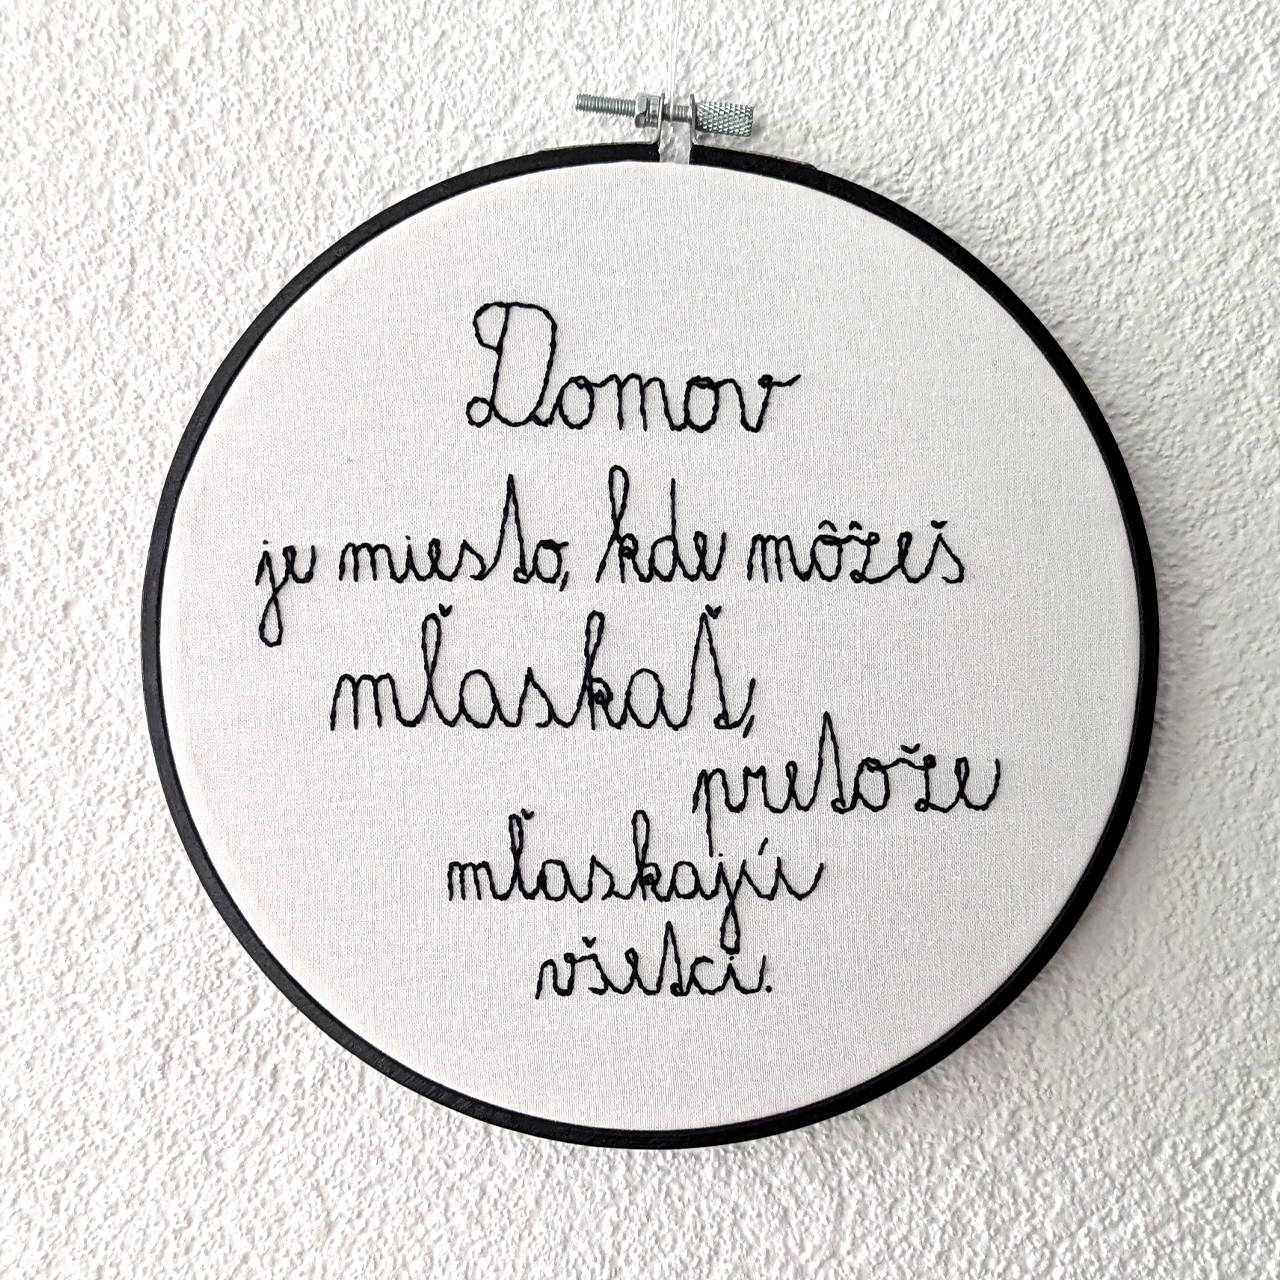 Domov
je miesto, kde môžeš
mľaskať,
pretože
mľaskajú
všetci.